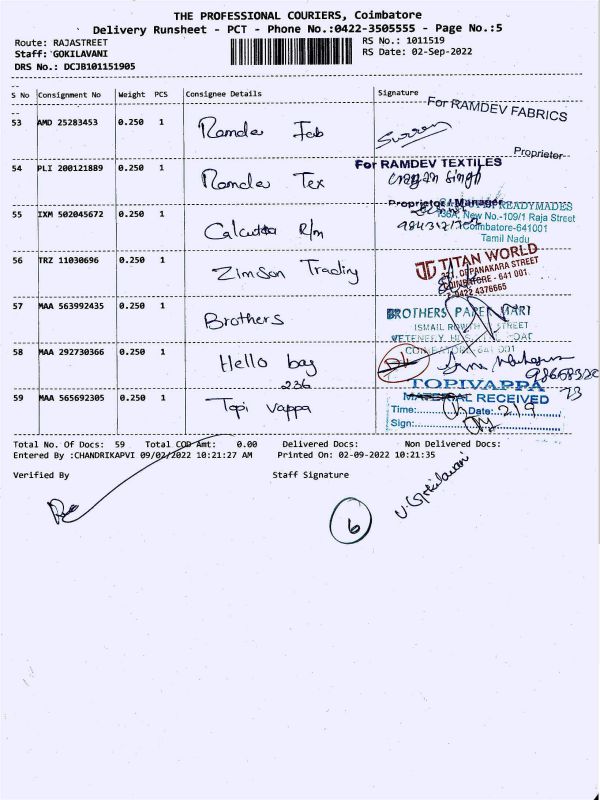 THE PROFESSIONAL COURIERS, Coimbatore
Delivery Runsheet - PCT - Phone No.:0422-3505555 - Page No.:5
Route: RAJASTREET
RS No.: 1011519
Staff: GOKILAVANI
RS Date: 02-Sep-2022
DRS No.: DCJB101151905
S No Consignment No Weight PCS Consignee Details Signature
For RAMDEV FABRICS
53 AMD 25283453 0.250 1 Ramdev Fab
Proprietor
For RAMDEV TEXTILES
54 PLI 200121889 0.250 1 Ramdev Tex
Singh
Proprietor Manager
READYMADES
55 IXM 502045672 0.250 1 Calcutta R/m
136A, New No.-109/1 Raja Street
Coimbatore-641001
Tamil Nadu
TITAN WORLD
56 TRZ 11030696 0.250 1 Zimson Trading
OPPANAKARA STREET
COIMBATORE - 641 001.
0422 4376665
57 MAA 563992435 0.250 1 Brothers
BROTHERS PAPER MART
ISMAIL ROWTH STREET
COIMBATORE 641 001
58 MAA 292730366 0.250 1 Hello bag
236
TOPIVAPPA
MATERIAL RECEIVED
59 MAA 565692305 0.250 1 Topi vappa
Time: Date: 2/9
Sign:
Total No. Of Docs: 59 Total COD Amt: 0.00 Delivered Docs: Non Delivered Docs:
Entered By :CHANDRIKAPVI 09/02/2022 10:21:27 AM Printed On: 02-09-2022 10:21:35
Verified By Staff Signature
V. Gokilavani
6